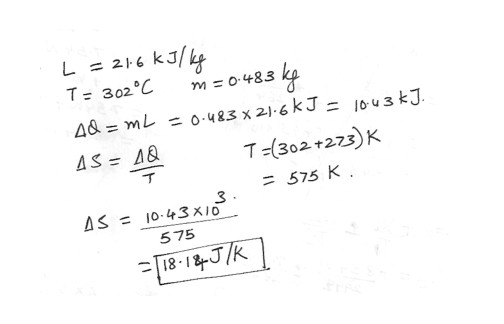 L = 21.6 kJ/kg
T = 302°C m = 0.483 kg
ΔQ = mL = 0.483 × 21.6 kJ = 10.43 kJ.
ΔS = ΔQ/T T = (302+273) K
= 575 K.
ΔS = 10.43 × 10³/575
= 18.14 J/K